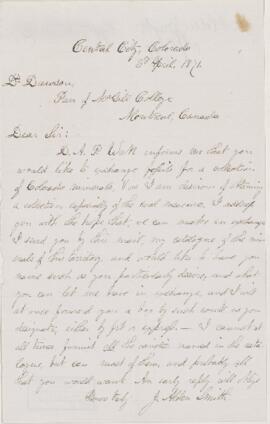 Central City, Colorado
5th April, 1871.
Dr Dawson,
Prin of McGill College
Montreal, Canada
Dear Sir:
D. A. P. Watt informs me that you
would like to exchange for a collection
of Colorado minerals. As I am desirous of obtaining
a collection especially of the coal measures. I address
you with the hope that we can make an exchange
I send you by this mail, my catalogue of the mine
rals of this Territory and would like to have you
name such as you particularly desire, and what
you can let me have in exchange, and I will
at once forward you a box by such route as you
designate, either by frt or express. — I cannot at
all times furnish all the varieties named in the cata
logue, but can most of them, and probably all
that you would want. An early reply will oblige
Yours truly J. Alden Smith